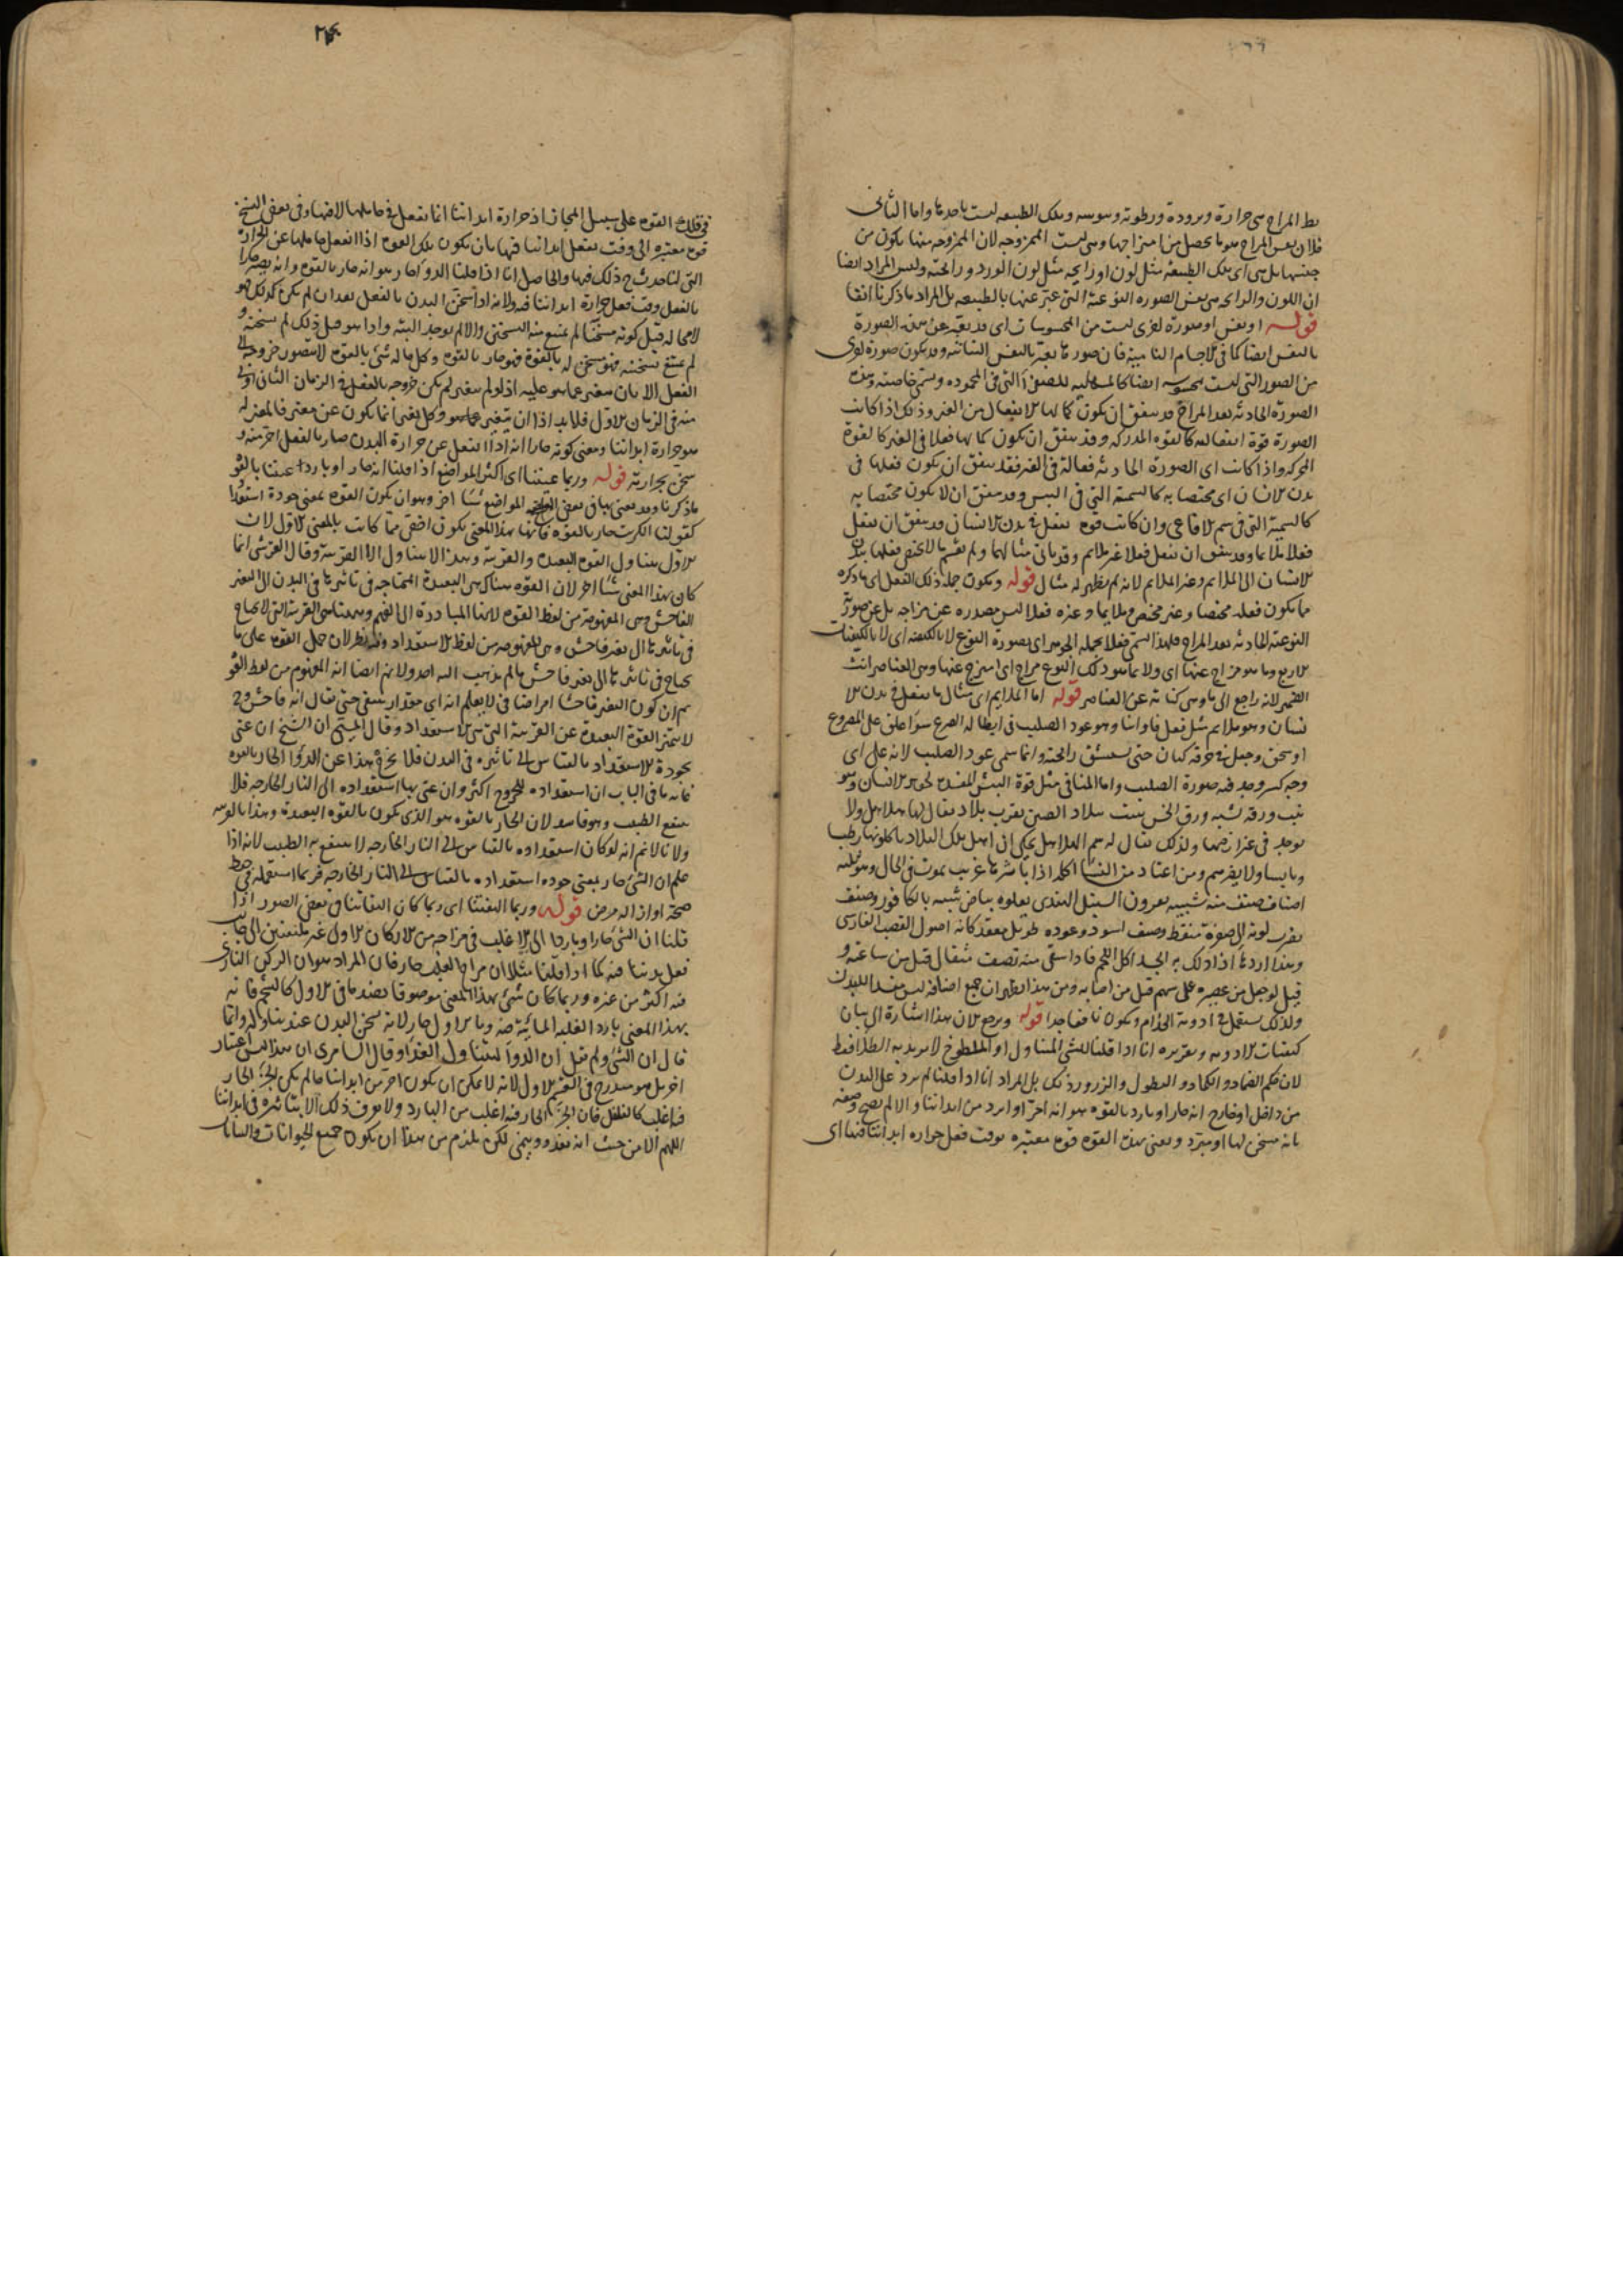 بسط المزاج هى حرارة وبرودة ورطوبة ويبوسة وتلك الطبيعه ليست باحدها واما الثانى
فلان نفس المزاج هو ما يحصل من امتزاجها وهى ليست الممزوجه لان الممزوجه منها يكون من
جنسها بل هى اى تلك الطبيعة مثل لون او رايحه مثل لون الورد ورائحته وليس المراد ايضا
ان اللون والرايحه هى نفس الصوره النوعية التى عبر عنها بالطبيعه بل المراد ما ذكرنا انفا
قوله او نفس او صورة اخرى ليست من المحسوسات اى قد يعبر عن هذه الصورة
بالنفس ايضا كما فى الاجسام النامية فان صورها يعبر بالنفس النباتيه وقد يكون صورة اخرى
من الصور التى ليست محسوسه ايضا كالمسهلية للصفرا التى فى المحموده ويسمى خاصيته وهذه
الصورة الحادثه بعد المزاج قد يتفق ان يكون كمالها الانفعال من الغير وذلك اذا كانت
الصورة قوة انفعاليه كالقوه المدركه وقد يتفق ان يكون كمالها فعلا فى الغير كالقوة
المحركه واذا كانت اى الصورة الحادثه فعالة فى الغير فقد يتفق ان يكون فعلها فى
بدن الانسان اى مختصا به كالسمية التى فى البيش وقد يتفق ان لا يكون مختصا به
كالسمية التى فى سم الافاعى وان كانت قوه تفعل فى بدن الانسان قد يتفق ان تفعل
فعلا ملايما وقد يتفق ان تفعل فعلا غير ملايم وقد ياتى مثالهما ولم يقسم ما لا يختص فعلها ببدن
الانسان الى الملايم وغير الملايم لانه لم يظهر له مثال قوله ويكون جملة ذلك الفعل اى ما ذكره
مما يكون فعله مختصا وغير مختص وملايما وغيره فعلا ليس مصدره عن مزاجه بل عن صورته
النوعية الحادثه بعد المزاج فلهذا يسمى فعلا بجملة الجوهر اى بصورة النوع لا بالكيفيه اى لا بالكيفيات
الاربع وما هو مزاج عنها اى ولا بما هو ذلك النوع مزاج اى امتزج عنها وهى العناصر انث
الضمير لانه راجع الى ما وهى كناية عن العناصر قوله اما الملايم اى مثال ما يفعل فى بدن الا
نسان وهو ملايم مثل فعل فاوانيا وهو عود الصليب فى ابطاله الصرع سواء علق على المصروع
او سحق وجعل فى خرقه كتان حتى يستنشق رائحته وانما سمى عود الصليب لانه على اى
وجه كسر وجد فيه صورة الصليب واما المنافى مثل قوة البيش المفسد لجوهر الانسان وهو
نبت ورقه شبيه ورق الخس ينبت ببلاد الصين بقرب بلاد يقال لها هلاهل ولا
يوجد فى غير ارضها ولذلك يقال له سم الهلاهل يحكى ان اهل تلك البلاد ياكلونها رطبا
ويابسا ولا يضرهم ومن اعتاد من النسا اكله اذا باشرها غريب يموت فى الحال وهو ثلثه
اصناف صنف منه شبيه بعروق السنبل الهندى يعلوه بياض شبيه بالكافور وصنف
يضرب لونه الى صفرة منقط وصنف اسود وعوده طويل معقد كانه اصول القصب الفارسى
وهذا اردئها اذا دلك به الجسد اكل اللحم فاذا سقى منه نصف مثقال قتل من ساعته و
قيل لو جعل من عصيره على سهم قتل من اصابه ومن هذا يظهر ان جميع اضافه ليس مفسدا للبدن
ولذلك يستعمل فى ادوية الجذام ويكون نافعا جدا قوله ونرجع الان هذا اشارة الى بيان
كيفيات الادويه وتقريره انا اذا قلنا للشى المتناول او الملطوخ لا نريد به الطلا فقط
لان حكم الضماد والكماد والنطول والذرور كذلك بل المراد انا اذا قلنا لما يرد على البدن
من داخل او خارج انه حار او بارد بالقوه هو انه احر او ابرد من ابداننا والا لم يصح وصفه
بانه مسخن لها او مبرد ونعنى بهذه القوه قوه معتبره بوقت فعل حراره ابداننا فيها اى
فى تلك القوه على سبيل المجاز اذ حرارة ابداننا انما تفعل فى حاملها لا فيها وفى بعض النسخ
قوه معتبره الى وقت تفعل ابداننا فيها بان يكون تلك القوه اذا انفعل حاملها عن الحرارة
التى لنا حدث ح ذلك فيها والحاصل انا اذا قلنا الدوا حار هو انه حار بالقوه وانه يصير حارا
بالفعل وقت فعل حرارة ابداننا فيه ولانه اذا سخن البدن بالفعل بعد ان لم يكن كذلك فهو
لا محاله قبل كونه مسخنا لم يمتنع منه التسخين والا لم يوجد البته واذا هو قبل ذلك لم يسخنه و
لم يمتنع تسخينه فهو مسخن له بالقوة فهو حار بالقوه وكل ما له شى بالقوه لا يتصور خروجه الى
الفعل الا بان يتغير عما هو عليه اذ لو لم يتغير لم يكن خروجه بالفعل فى الزمان الثانى اولى
منه فى الزمان الاول فلا بد اذا ان يتغير عما هو وكل تغير انما يكون عن مغير فالمغير له
هو حرارة ابداننا ومعنى كونه حارا انه اذا انفعل عن حرارة البدن صار بالفعل احر منه و
سخن بحرارته قوله وربما عنينا اى اكثر المواضع اذا قلنا انه حار او بارد عنينا بالقو
ما ذكرنا وقد نعنى بها فى بعض المواضع شيئا اخر وهو ان يكون القوه بمعنى جودة استعداد
كقولنا الكبريت حار بالقوه فانها بهذا المعنى يكون اخص مما كانت بالمعنى الاول لان
الاول يتناول القوه البعيده والقريبه وهذا لا يتناول الا القريبة وقال القرشى انما
كان هذا المعنى شيئا اخر لان القوه هناك هى البعيدة المحتاجه فى تاثيرها فى البدن الى التغير
الفاحش وهى المفهومة من لفظ القوه لانها المبادرة الى الفهم وههنا هى القريبة التى لا يحتاج
فى تاثيرها الى تغير فاحش وهى المفهومه من لفظ الاستعداد وفيه نظر لان حمل القوه على ما
يحتاج فى تاثيرها الى تغير فاحش ما لم يذهب اليه احد ولا نم ايضا انه المفهوم من لفظ القو
ثم ان كون التغير فاحشا امر اضافى لا يعلم انه اى مقدار ينبغى حتى يقال انه فاحش وح
لا يتميز القوة البعيدة عن القريبة التى هى الاستعداد وقال المسيحى ان الشيخ ان عنى
بجودة الاستعداد بالقياس الى تاثيره فى البدن فلا يخرج هذا عن الدوا الحار بالقوه
غايه ما فى الباب ان استعداده للخروج اكثر وان عنى بها استعداده الى النار الخارجه فلا
ينتفع الطبيب وهو فاسد لان الحار بالقوه هو الذى يكون بالقوه البعيدة وهذا بالقريبه
ولانا لا نم انه لو كان استعداده بالقياس الى النار الخارجه لا ينتفع به الطبيب لانه اذا
علم ان الشى حار بمعنى جوده استعداده بالقياس الى النار الخارجه فربما استعمله فى حفظ
صحة او ازاله مرض قوله وربما التفتنا اى ربما كان التفاتنا فى بعض الصور اذا
قلنا ان الشى حارا وباردا الى الاغلب فى مزاجه من الاركان الاول غير ملتفتين الى جانب
فعل بدننا فيه كما اذا قلنا مثلا ان مزاج القلب حار فان المراد هو ان الركن النارى
فيه اكثر من غيره وربما كان شى بهذا المعنى موصوفا بضد ما فى الاول كالشحم فانه
بهذا المعنى بارد لغلبة المائية فيه وبالاول حار لانه يسخن البدن عند تناوله وانما
قال ان الشى ولم يقل ان الدوا ليتناول الغذا وقال السامرى ان هذا ليس اعتبار
اخر بل هو مندرج فى القسم الاول لانه لا يمكن ان يكون احر من ابداننا ما لم يكن الجزء الحار
فيه اغلب كالفلفل فان الجزء الحار فيه اغلب من البارد ولا يعرف ذلك الا بتاثيره فى ابداننا
اللهم الا من حيث انه يغذو وينمى لكن يلزم من هذا ان يكون جميع الحيوانات والنبات